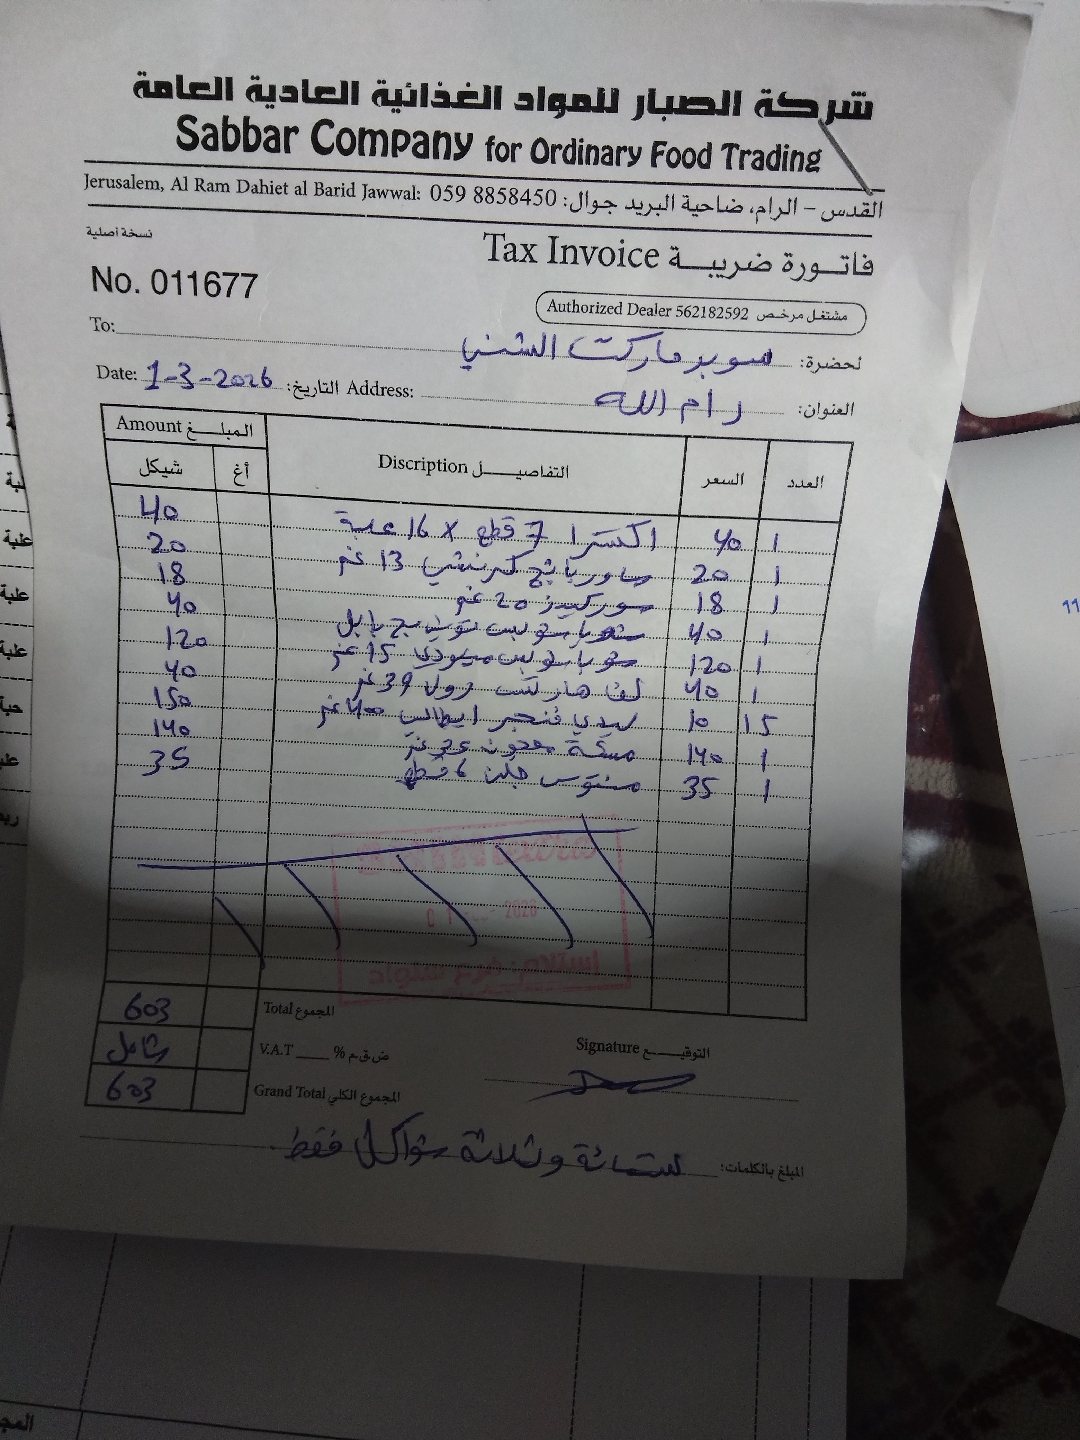 شركة الصبار للمواد الغذائية العادية العامة
Sabbar Company for Ordinary Food Trading
Jerusalem, Al Ram Dahiet al Barid Jawwal: 059 8858450 القدس - الرام، ضاحية البريد جوال:
نسخة أصلية
Tax Invoice فاتورة ضريبة
No. 011677
Authorized Dealer 562182592 مشتغل مرخص
To: لحضرة: سوبر ماركت الشني
Date: 1-3-2026 التاريخ: Address: العنوان: رام الله
Amount المبلغ
العدد السعر التفاصيل Discription أغ شيكل
1 40 اكسترا 7 قطع x 16 علبة 40
1 20 13 غم 20
1 18 20 غم 18
1 40 40
1 120 15 غم 120
1 40 رول 39 غم 40
15 10 ليدي فنجر 400 غم 150
1 140 مسكة معجون 140
1 35 منتوس 6 قطع 35
2026
603 Total المجموع
شامل V.A.T ___ % ض.ق.م
603 Grand Total المجموع الكلي
Signature التوقيع
المبلغ بالكلمات: ستمائة وثلاثة شواكل فقط